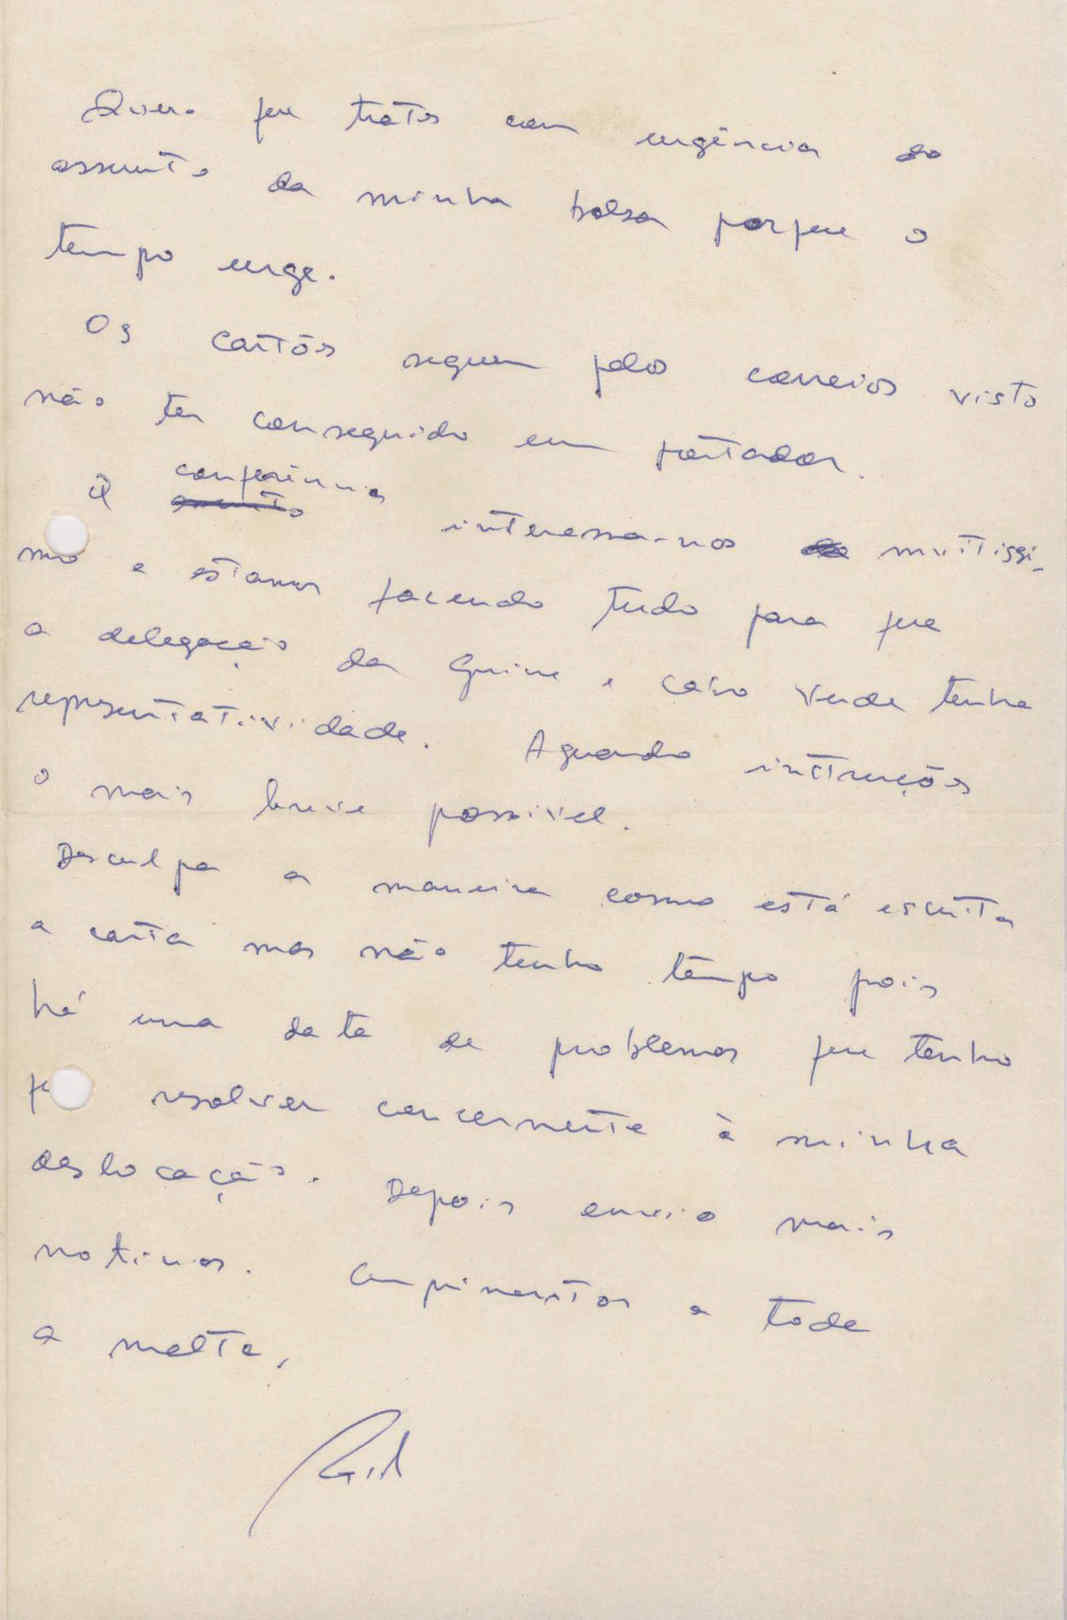 Quero que trates com urgência do
assunto da minha bolsa porque o
tempo urge.
Os cartões seguem pelos correios visto
não ter conseguido um portador.
A conferência
assunto interessa-nos muitissi-
mo e estamos fazendo tudo para que
a delegação da Guiné e Cabo Verde tenha
representatividade. Aguardo instruções
o mais breve possivel.
Desculpa a maneira como está escrita
a carta mas não tenho tempo pois
há uma data de problemas que tenho
resolver concernente à minha
deslocação. Depois envio mais
noticias. Cumprimentos a toda
a malta,
Gil